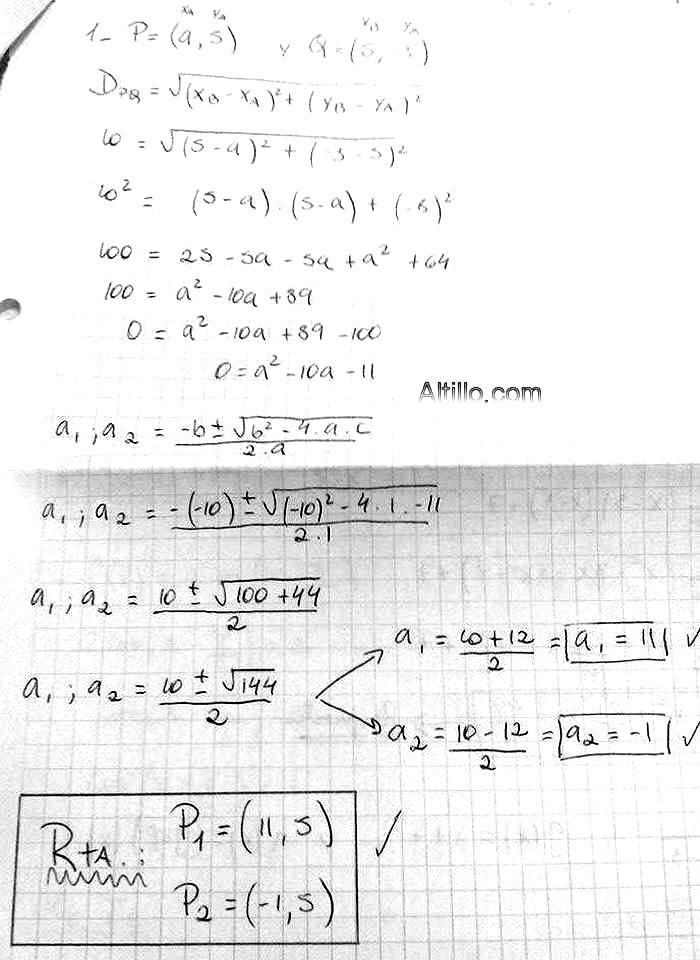 x_A y_A x_B y_A
1- P = (a, 5) y Q = (5,
D_PQ = √(x_B - x_A)² + (y_B - y_A)²
10 = √(5-a)² + (-3-5)²
10² = (5-a).(5-a) + (-8)²
100 = 25 - 5a - 5a + a² + 64
100 = a² - 10a + 89
0 = a² - 10a + 89 - 100
0 = a² - 10a - 11
Altillo.com
a₁ ; a₂ = -b ± √b² - 4.a.c / 2.a
a₁ ; a₂ = -(-10) ± √(-10)² - 4.1.-11 / 2.1
a₁ ; a₂ = 10 ± √100+44 / 2
a₁ = 10+12 / 2 = a₁ = 11 ✓
a₁ ; a₂ = 10 ± √144 / 2
a₂ = 10-12 / 2 = a₂ = -1 ✓
P₁ = (11, 5) ✓
RtA.:
P₂ = (-1, 5)